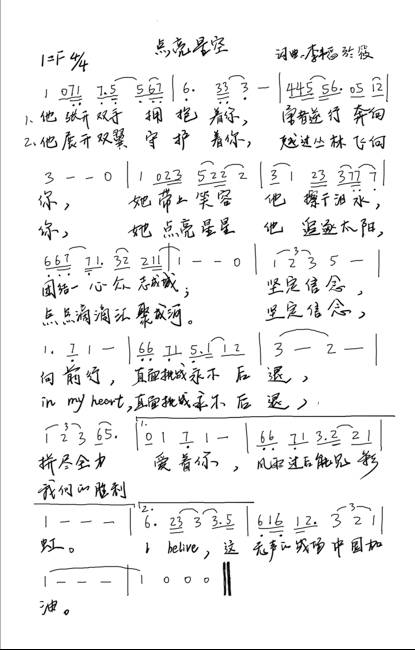 点亮星空
1=F 4/4
词曲:李
1 071 7.5 567 | 6. 33 3 — | 445 56. 05 12 |
1.他 张开 双手 拥 抱 着你, 逆行 奔向
2.他 展开 双翼 守 护 着你, 越过 丛林 飞向
3 — — 0 | 1 023 522 2 | 3 1 23 377 7 |
你, 她 带上 笑容 他 擦干 泪水,
你, 她 点亮 星星 他 追逐 太阳,
667 71. 32 211 | 1 — — 0 | 1 2 3 5 — |
团结一心众志成城; 坚定信念,
点点滴滴汇聚成河。 坚定信念,
1. 7 1 — | 66 71 5.1 12 | 3 — 2 — |
向前行, 直面挑战永不后退,
in my heart, 直面挑战永不后退,
1 2 3 3 65. | 01 7 1 — | 66 71 3.2 21 |
拼尽全力 爱着你, 风雨过后能见彩
我们的胜利
1 — — — | 2. 6. 23 3 3.5 | 616 12. 3 3 2 1 |
虹。 I belive, 这 无声的战场中国加
1 — — — | 1 0 0 0 ||
油。